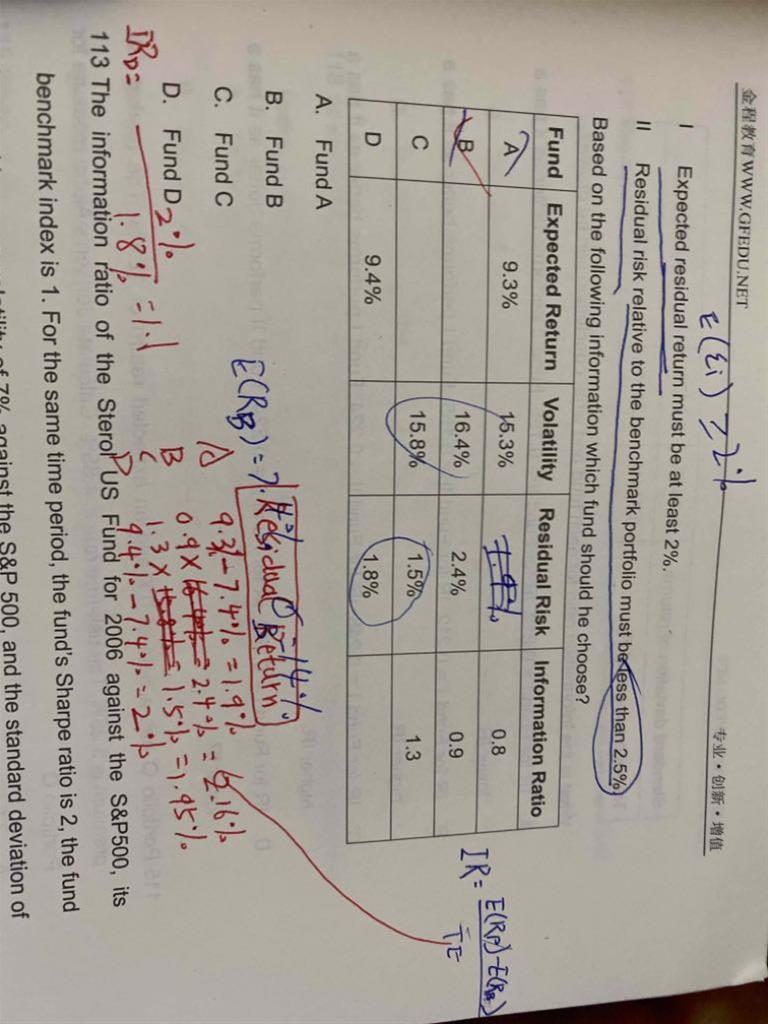 金程教育WWW.GFEDU.NET 专业·创新·增值
E(εi) ≥ 2%
I Expected residual return must be at least 2%.
II Residual risk relative to the benchmark portfolio must be less than 2.5%
Based on the following information which fund should he choose?
Fund Expected Return Volatility Residual Risk Information Ratio
A 9.3% 15.3% 0.8
B 16.4% 2.4% 0.9
C 15.8% 1.5% 1.3
D 9.4% 1.8%
IR = E(RP)-E(RB)
TE
A. Fund A
B. Fund B
C. Fund C
D. Fund D
E(RB) = 7.4% 14%
Residual Return
A 9.3%-7.4%=1.9%
B 0.9× 2.4% = 2.16%
C 1.3× 1.5% =1.95%
D 9.4%-7.4%=2%
IRD= 2%
1.8% =1.1
113 The information ratio of the Sterol US Fund for 2006 against the S&P500, its
benchmark index is 1. For the same time period, the fund's Sharpe ratio is 2, the fund
of 7% against the S&P 500, and the standard deviation of